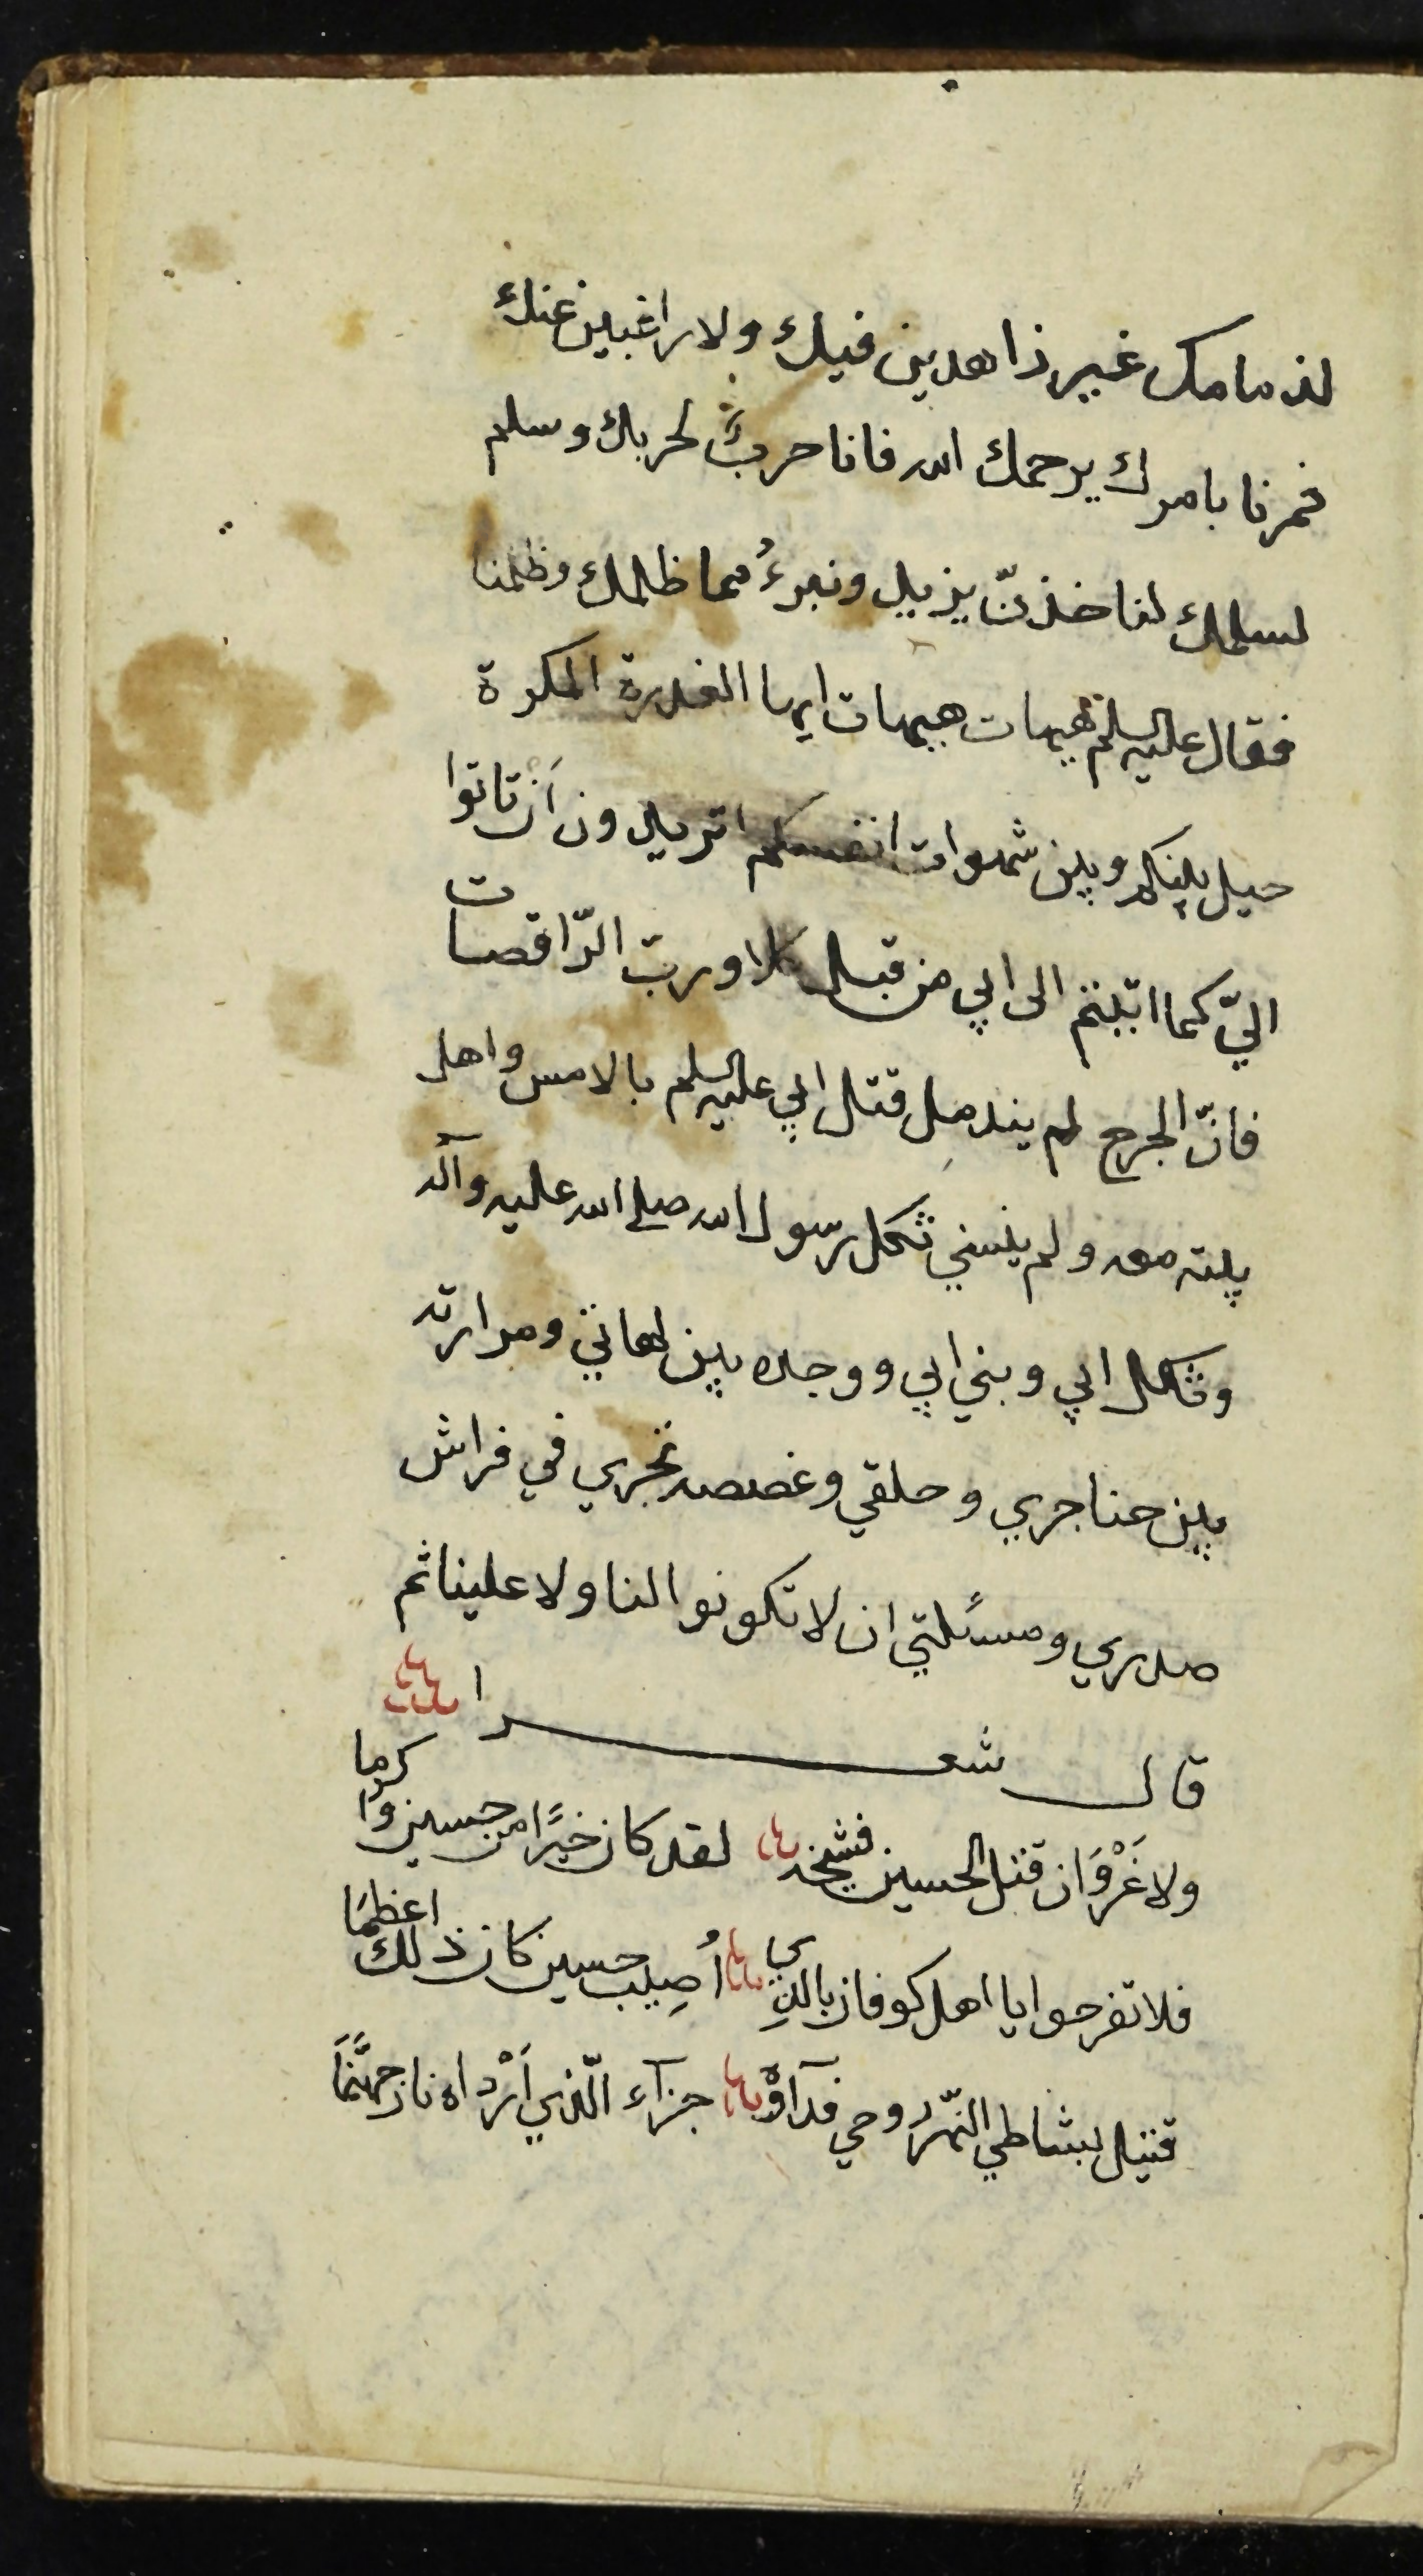 لذمامك غير زاهدين فيك ولا راغبين عنك
فمرنا بامرك يرحمك الله فانا حربٌ لحربك وسلم
لسلمك لناخذنّ يزيد ونبرءُ مما ظلمك وظلمنا
فقال عليه السلم هيهات هيهات ايها الغدرة المكرة
حيل بينكم وبين شهوات انفسكم اتريدون اَن تاتوا
اليّ كما اتيتم الى ابي من قبل كلا ورب الرّاقصات
فانّ الجرح لم يندمل قتل ابي عليه السلم بالامس واهل
بيته معه ولم ينسني ثكل رسول الله صلى الله عليه وآله
وثكل ابي وبني ابي ووجده بين لهاتي ومرارته
بين حناجري وحلقي وغصصه تجري في فراش
صدري ومسئلتي ان لا تكونوا لنا ولا علينا ثم
قال شعرا
ولا غَرْوَ ان قتل الحسين فشيخه لقد كان خيرًا من حسين واكرما
فلا تفرحوا يا اهل كوفان بالذي اُصِيب حسين كان ذلك اعظمَا
قتيل بشاطي النّهر روحي فدآؤه جزآء الّذي اَرْداه نار جهنَّمَا